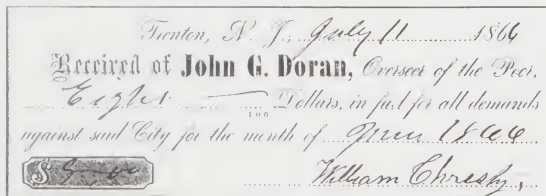 Trenton, N. J., July 11 1866
Received of John G. Doran, Overseer of the Poor,
Eight — Dollars, in full for all demands
100
against said City for the month of June 1866
$ 8
William